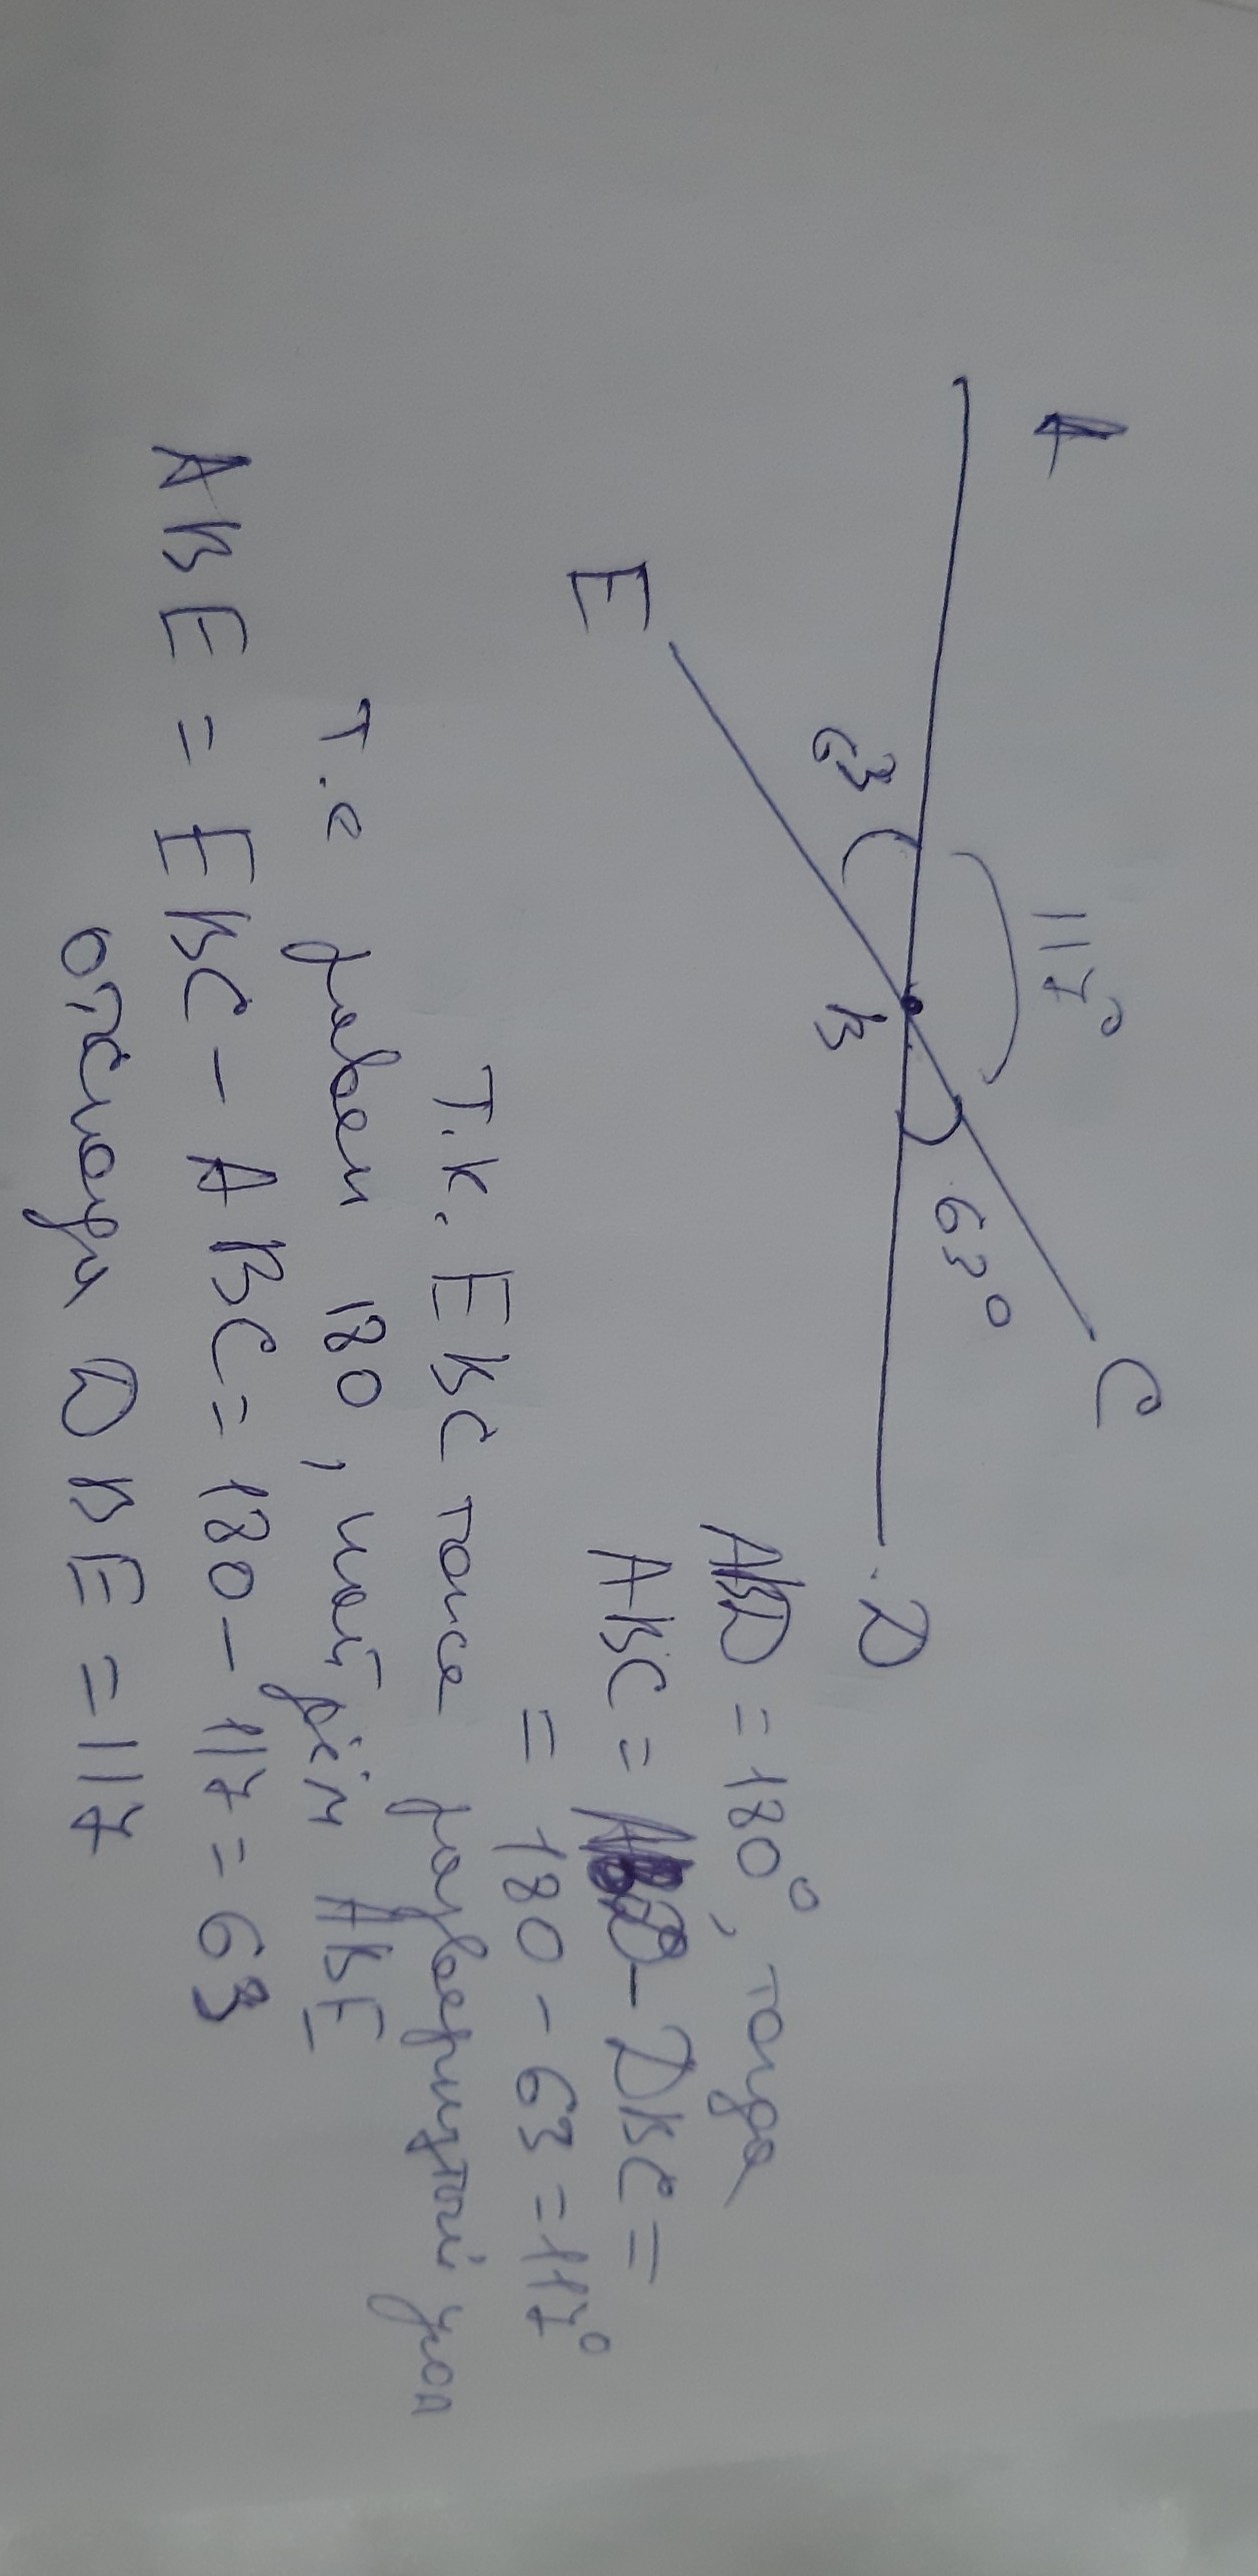 A
117°
C
63
63°
B
D
E
ABD = 180°, тогда
ABC = ABD - DBC =
= 180 - 63 = 117°
Т.к. EBC тоже развернутый угол
т.е равен 180, найдём ABE
ABE = EBC - ABC = 180 - 117 = 63
отсюда DBE = 117